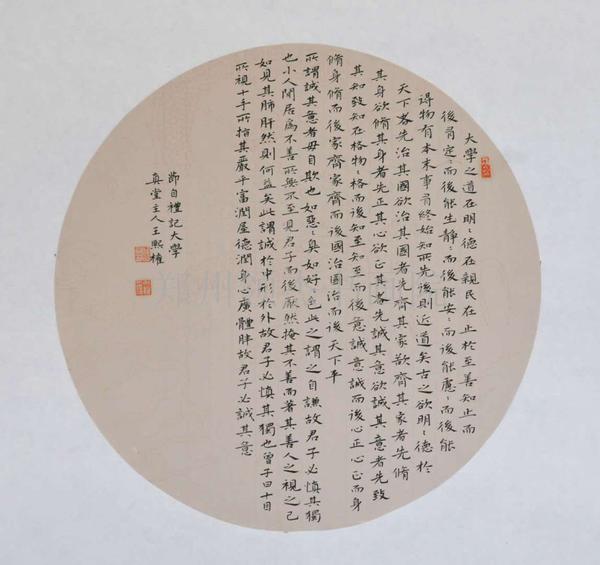 大學之道在明〻德在親民在止於至善知止而
後有定〻而後能生靜〻而後能安〻而後能慮〻而後能
得物有本末事有終始知所先後則近道矣古之欲明〻德於
天下者先治其國欲治其國者先齊其家欲齊其家者先脩
其身欲脩其身者先正其心欲正其心者先誠其意欲誠其意者先致
其知致知在格物〻格而後知至知至而後意誠意誠而後心正心正而身
脩身脩而後家齊家齊而後國治國治而後天下平
所謂誠其意者毋自欺也如惡〻臭如好〻色此之謂之自謙故君子必慎其獨
也小人閑居為不善所無不至見君子而後厭然掩其不善而著其善人之視之己
如見其肺肝然則何益矣此謂誠於中形於外故君子必慎其獨也曾子曰十目
所視十手所指其嚴乎富潤屋德潤身心廣體胖故君子必誠其意
節自禮記大學
真堂主人王熙